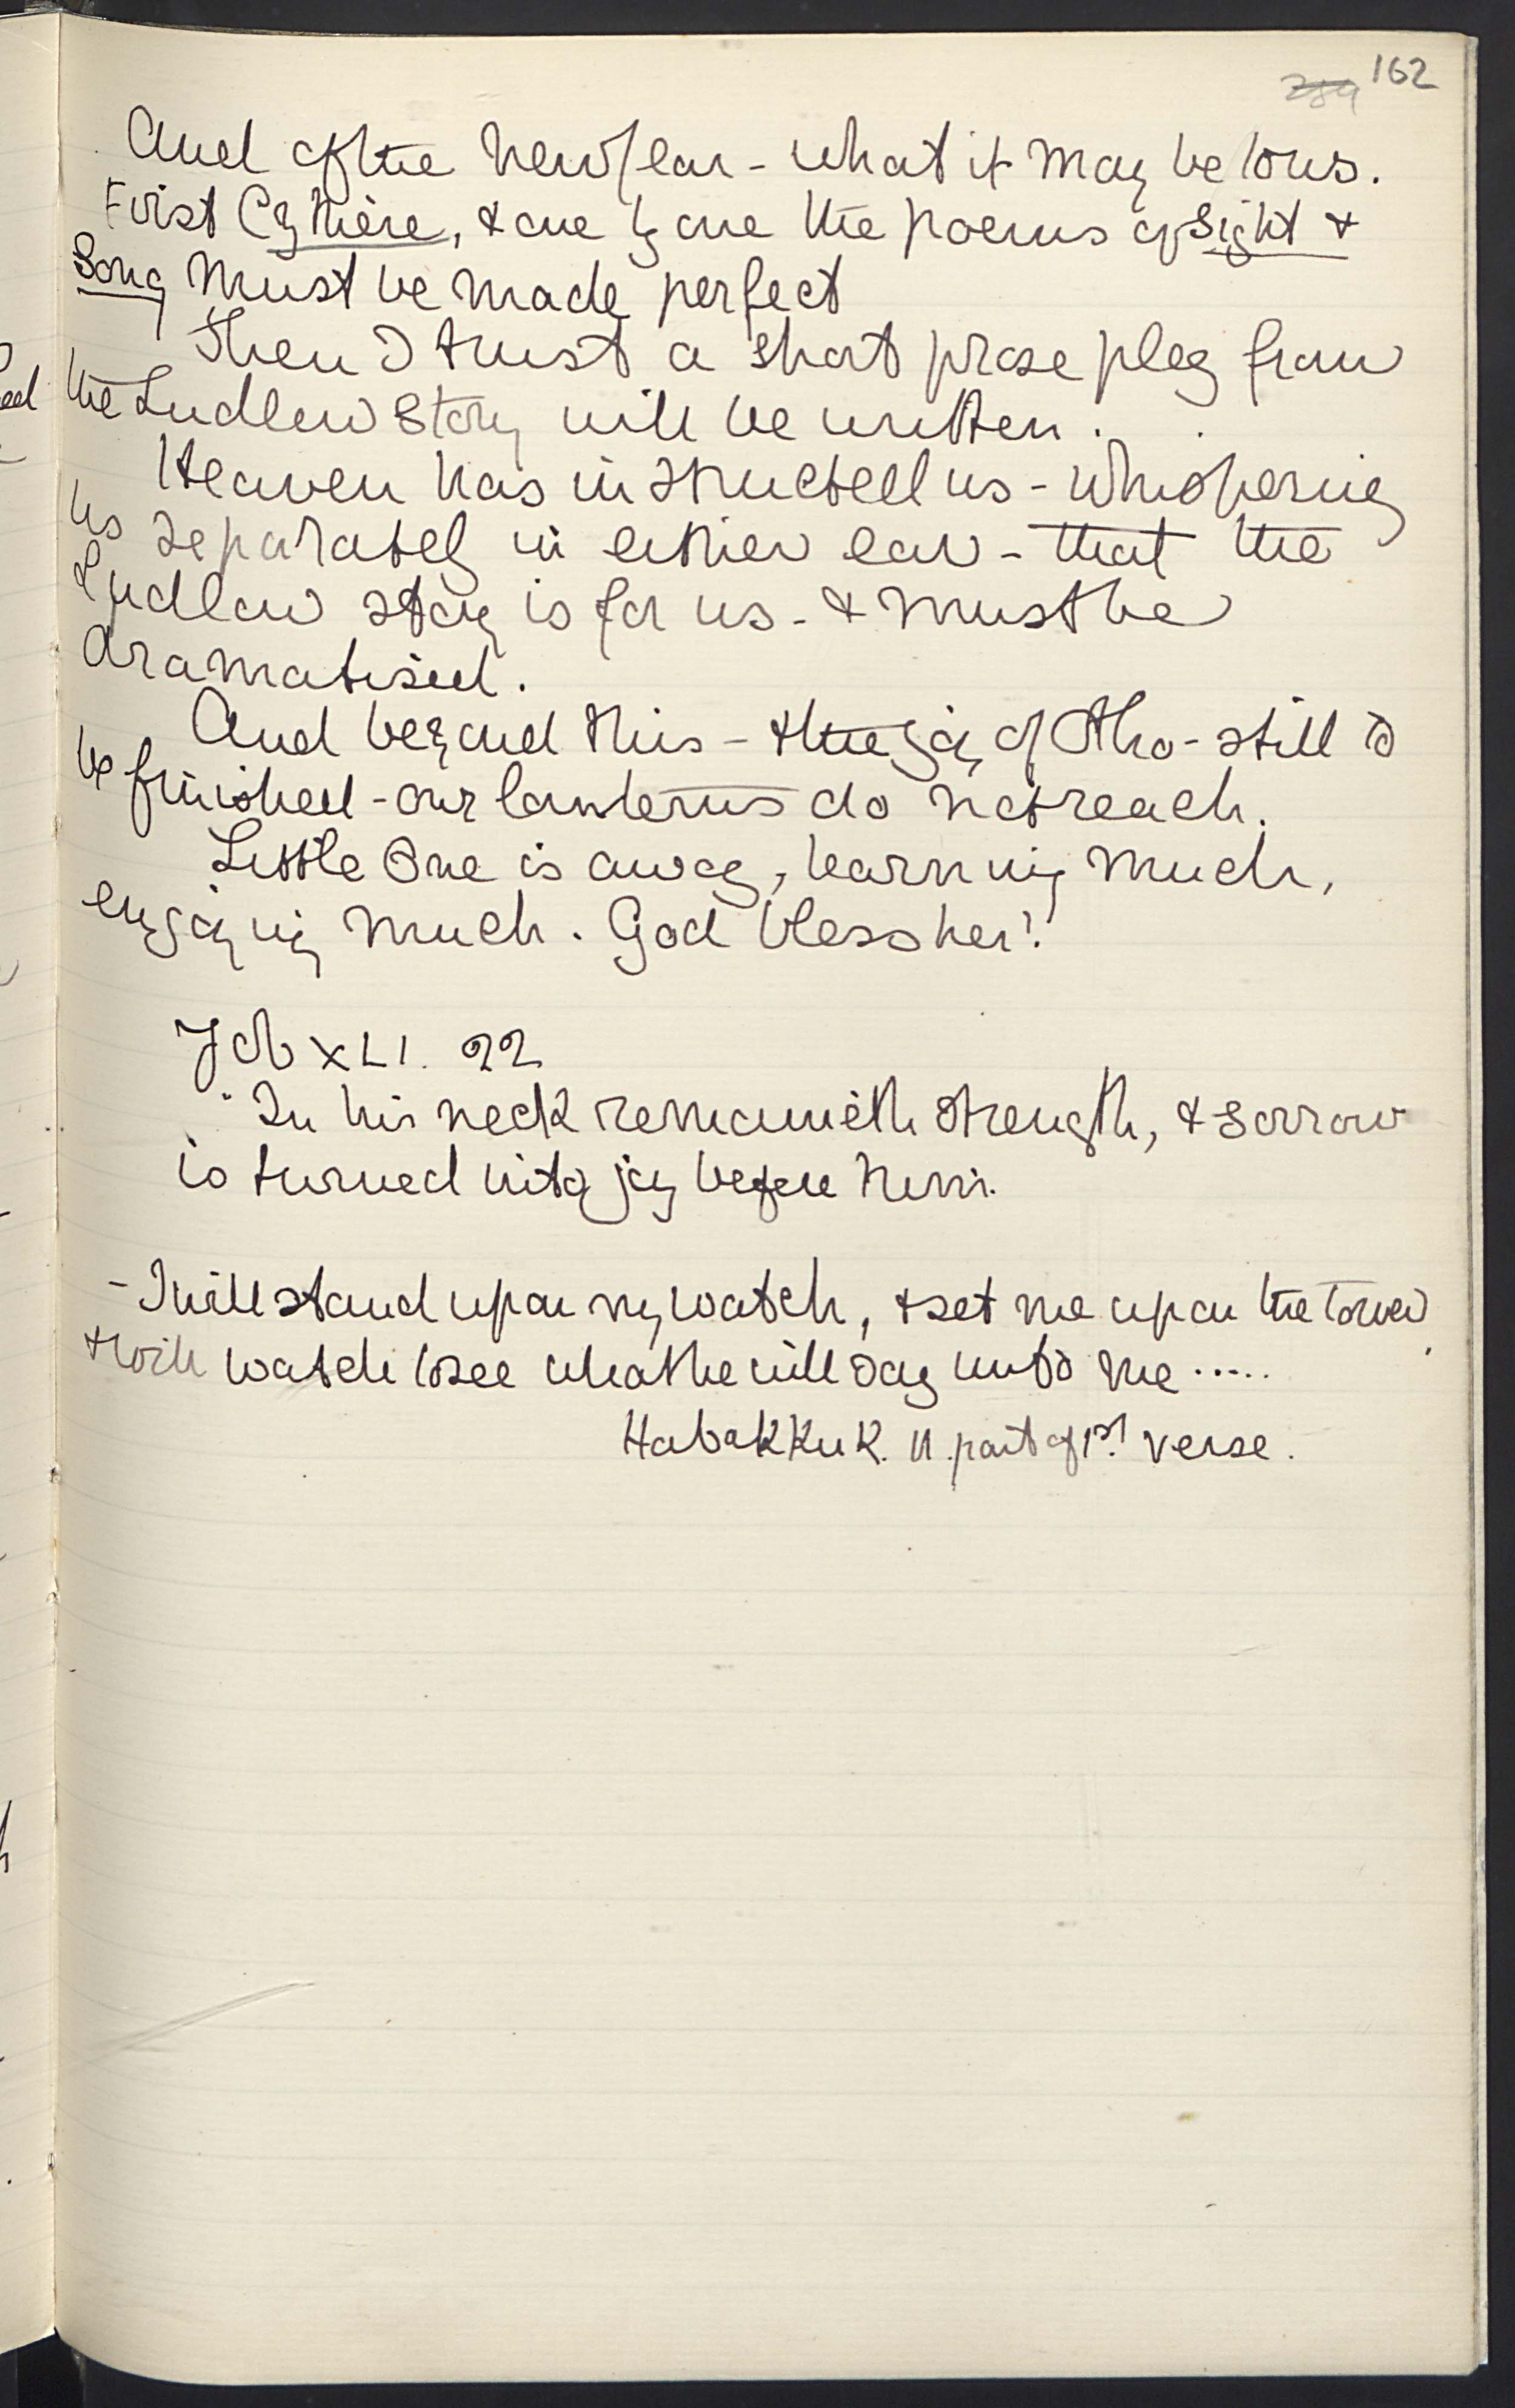 162
And of the New Year - what it may be to us.
First Cythère, & one by one the poems of Sight &
Song must be made perfect
Then I trust a short prose play from
the Ludlow Story will be written.
Heaven has instructed us - whispering
us separately in either ear - that the
Ludlow story is for us - & must be
dramatised.
And beyond this - & the joy of Otho - still to
be finished - our lanterns do not reach.
Little One is away, learning much,
enjoying much. God bless her!
Job XLI. 22
In his neck remaineth strength, & sorrow
is turned into joy before him.
- I will stand upon my watch, & set me upon the tower
& will watch to see what he will say unto me .....
Habakkuk. II. part of 1st verse.